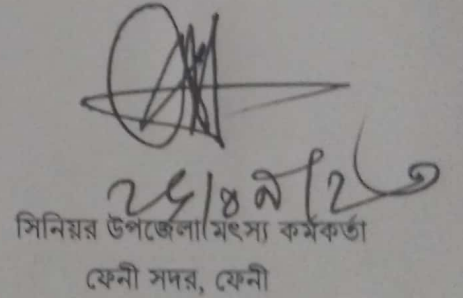 সিনিয়র উপজেলা মৎস্য কর্মকর্তা
ফেনী সদর, ফেনী